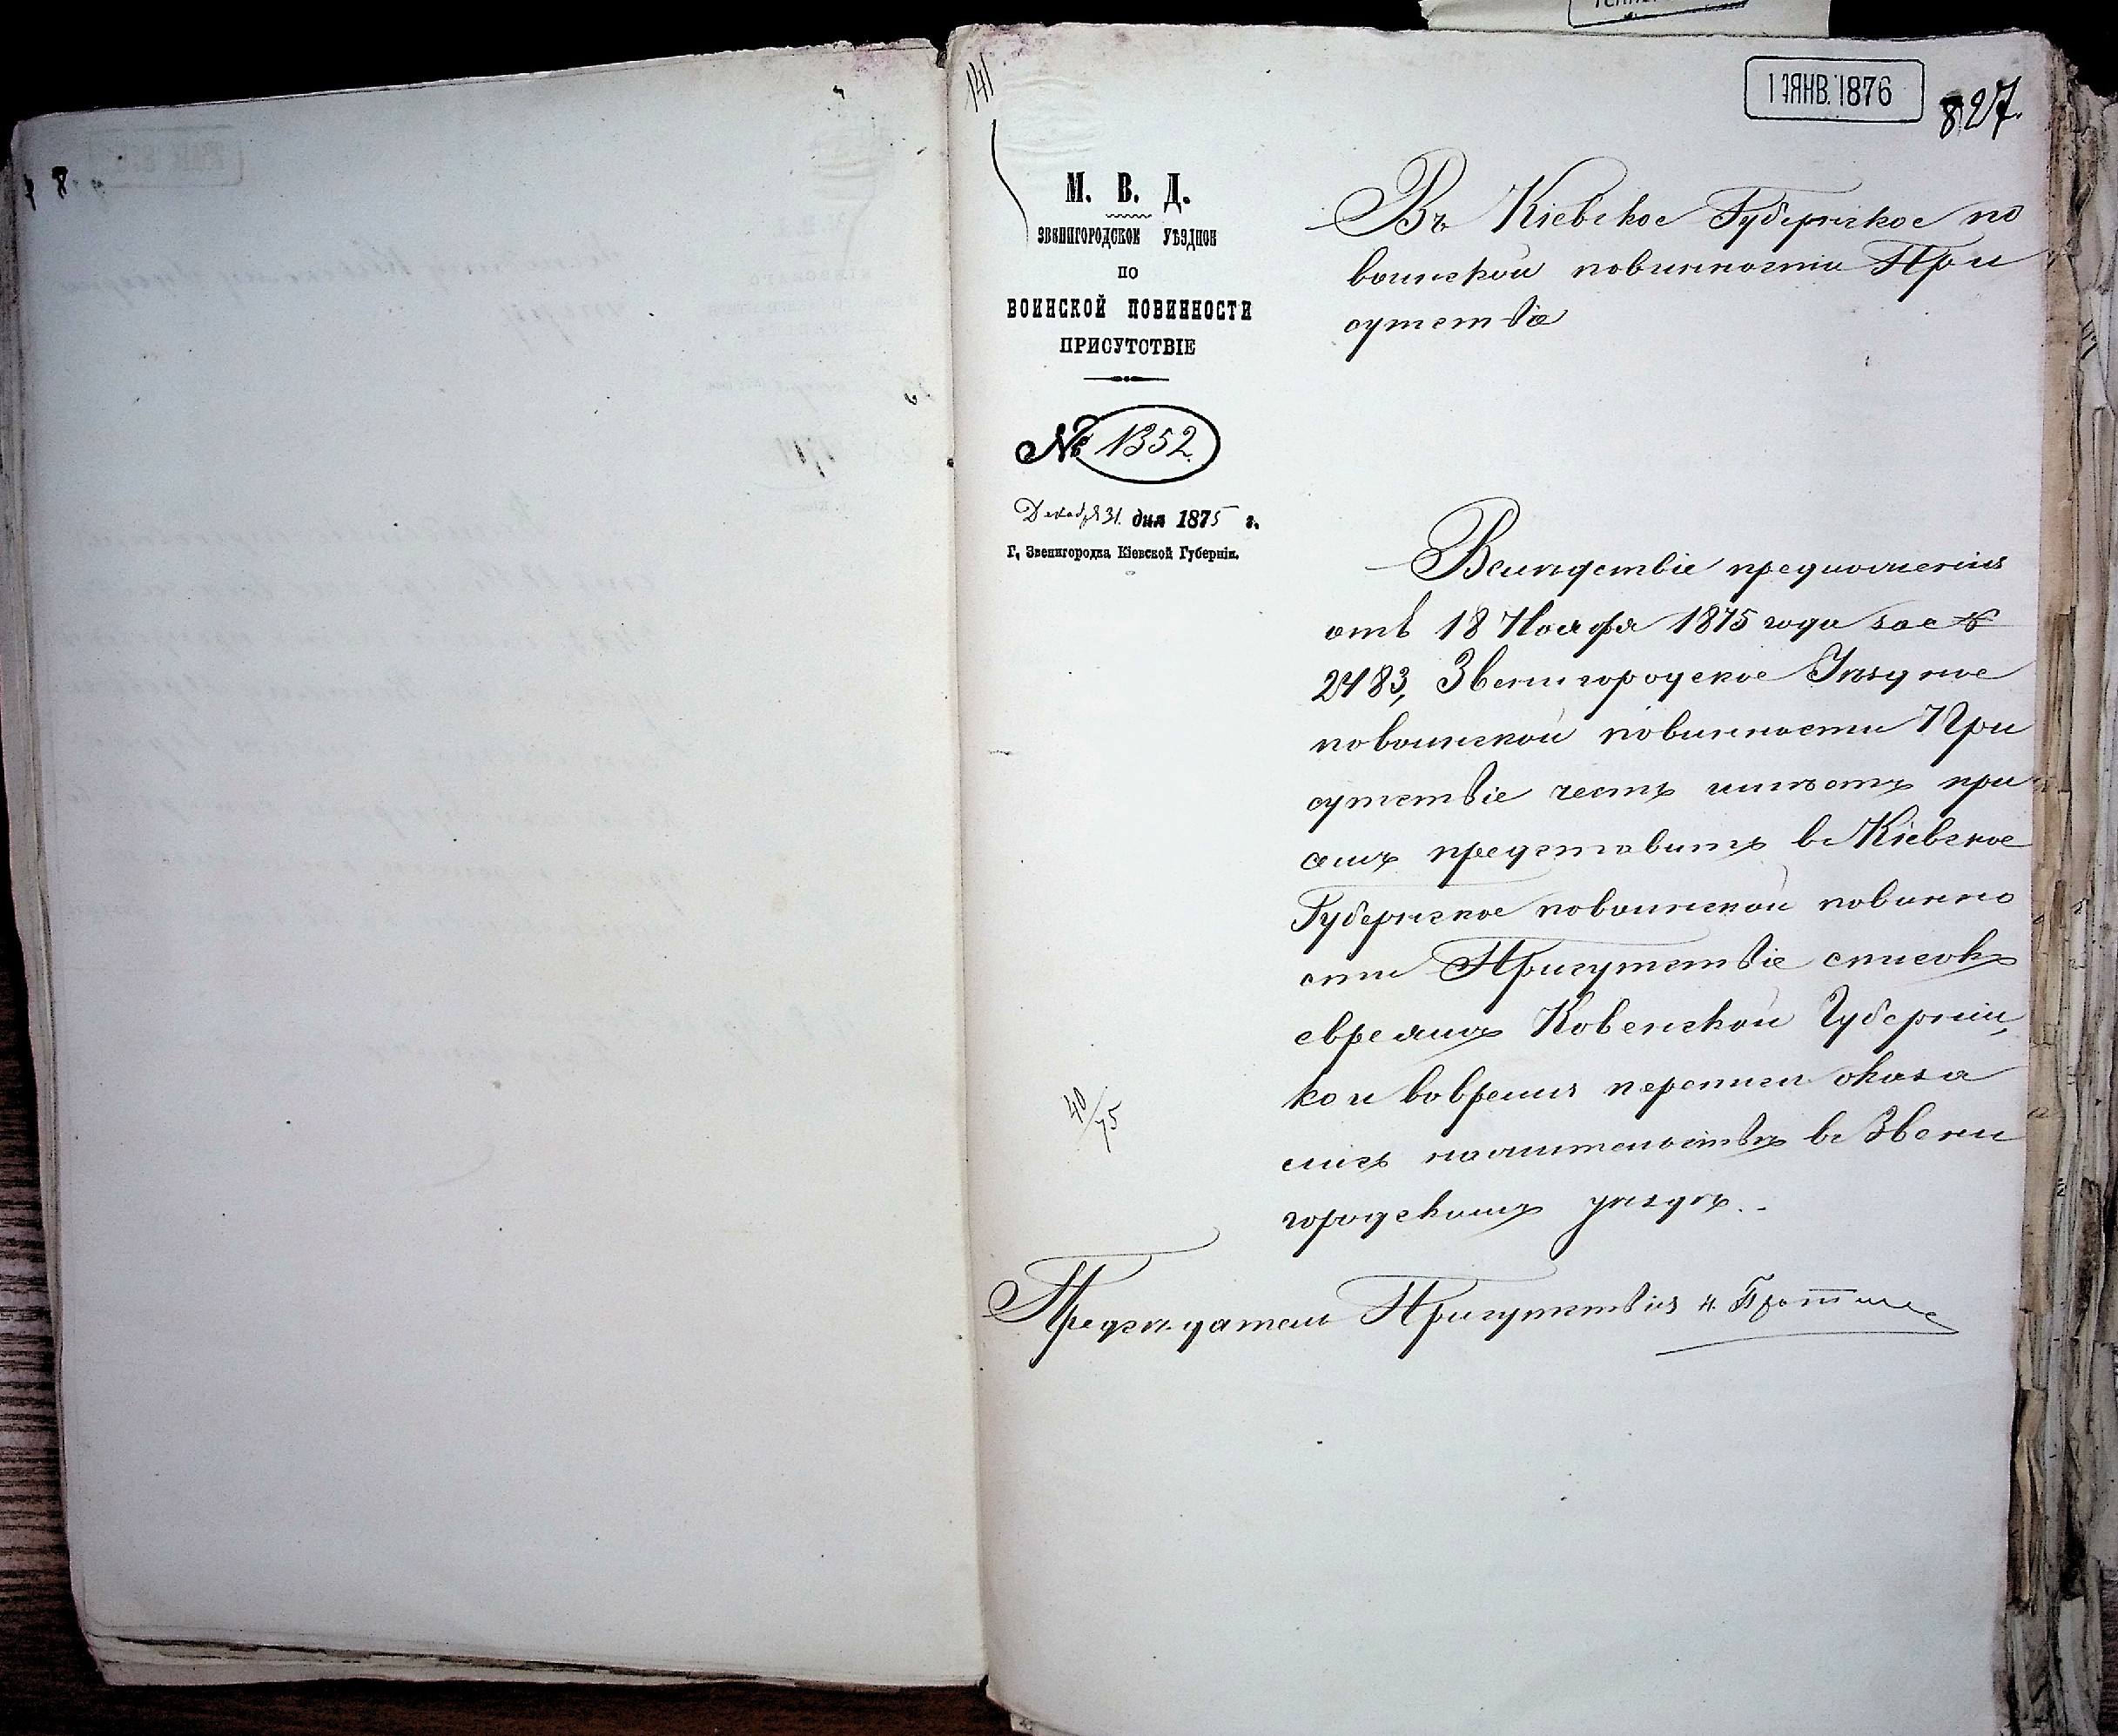 141
1 ЯНВ. 1876
827.
М. В. Д.
ЗВЕНИГОРОДСКОЕ УѢЗДНОЕ
ПО
ВОИНСКОЙ ПОВИННОСТИ
ПРИСУТСТВІЕ
№ 1352
Декабря 31. дня 1875 г.
Г. Звенигородка Кіевской Губерніи.
Въ Кіевское Губернское по
воинской повинности При
сутствіе
Вслѣдствіе предложенія
отъ 18 Ноября 1875 года за №
2483, Звенигородское Уѣздное
повоинской повинности При
сутствіе честь имѣетъ при
семъ представить въ Кіевское
Губернское повоинской повинно
сти Присутствіе списокъ
евреямъ Ковенской Губерніи,
кои вовремя переписи оказа
лись нажительствѣ въ Звени
городскимъ уѣздѣ..
40/75
Предсѣдатель Присутствія